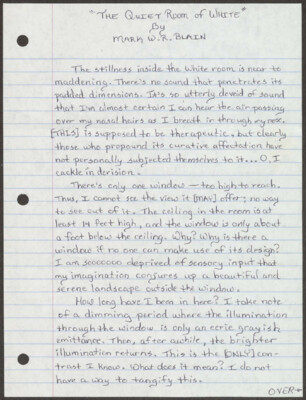 "THE QUIET ROOM OF WHITE"
By
MARK W.R. BLAIN
The stillness inside the white room is near to
maddening. There's no sound that penetrates its
padded dimensions. It's so utterly devoid of sound
that I'm almost certain I can hear the air passing
over my nasal hairs as I breath in through my nose.
[THIS] is supposed to be therapeutic, but clearly
those who propound its curative affectation have
not personally subjected themselves to it... O, I
cackle in derision.
There's only one window — too high to reach.
Thus, I cannot see the view it [MAY] offer; no way
to see out of it. The ceiling in the room is at
least 14 feet high, and the window is only about
a foot below the ceiling. Why? Why is there a
window if no one can make use of its design?
I am sooooooo deprived of sensory input that
my imagination conjures up a beautiful and
serene landscape outside the window.
How long have I been in here? I take note
of a dimming period where the illumination
through the window is only an eerie grayish
emittance. Then, after awhile, the brighter
illumination returns. This is the [ONLY] con-
trast I know. What does it mean? I do not
have a way to tangify this.
OVER→